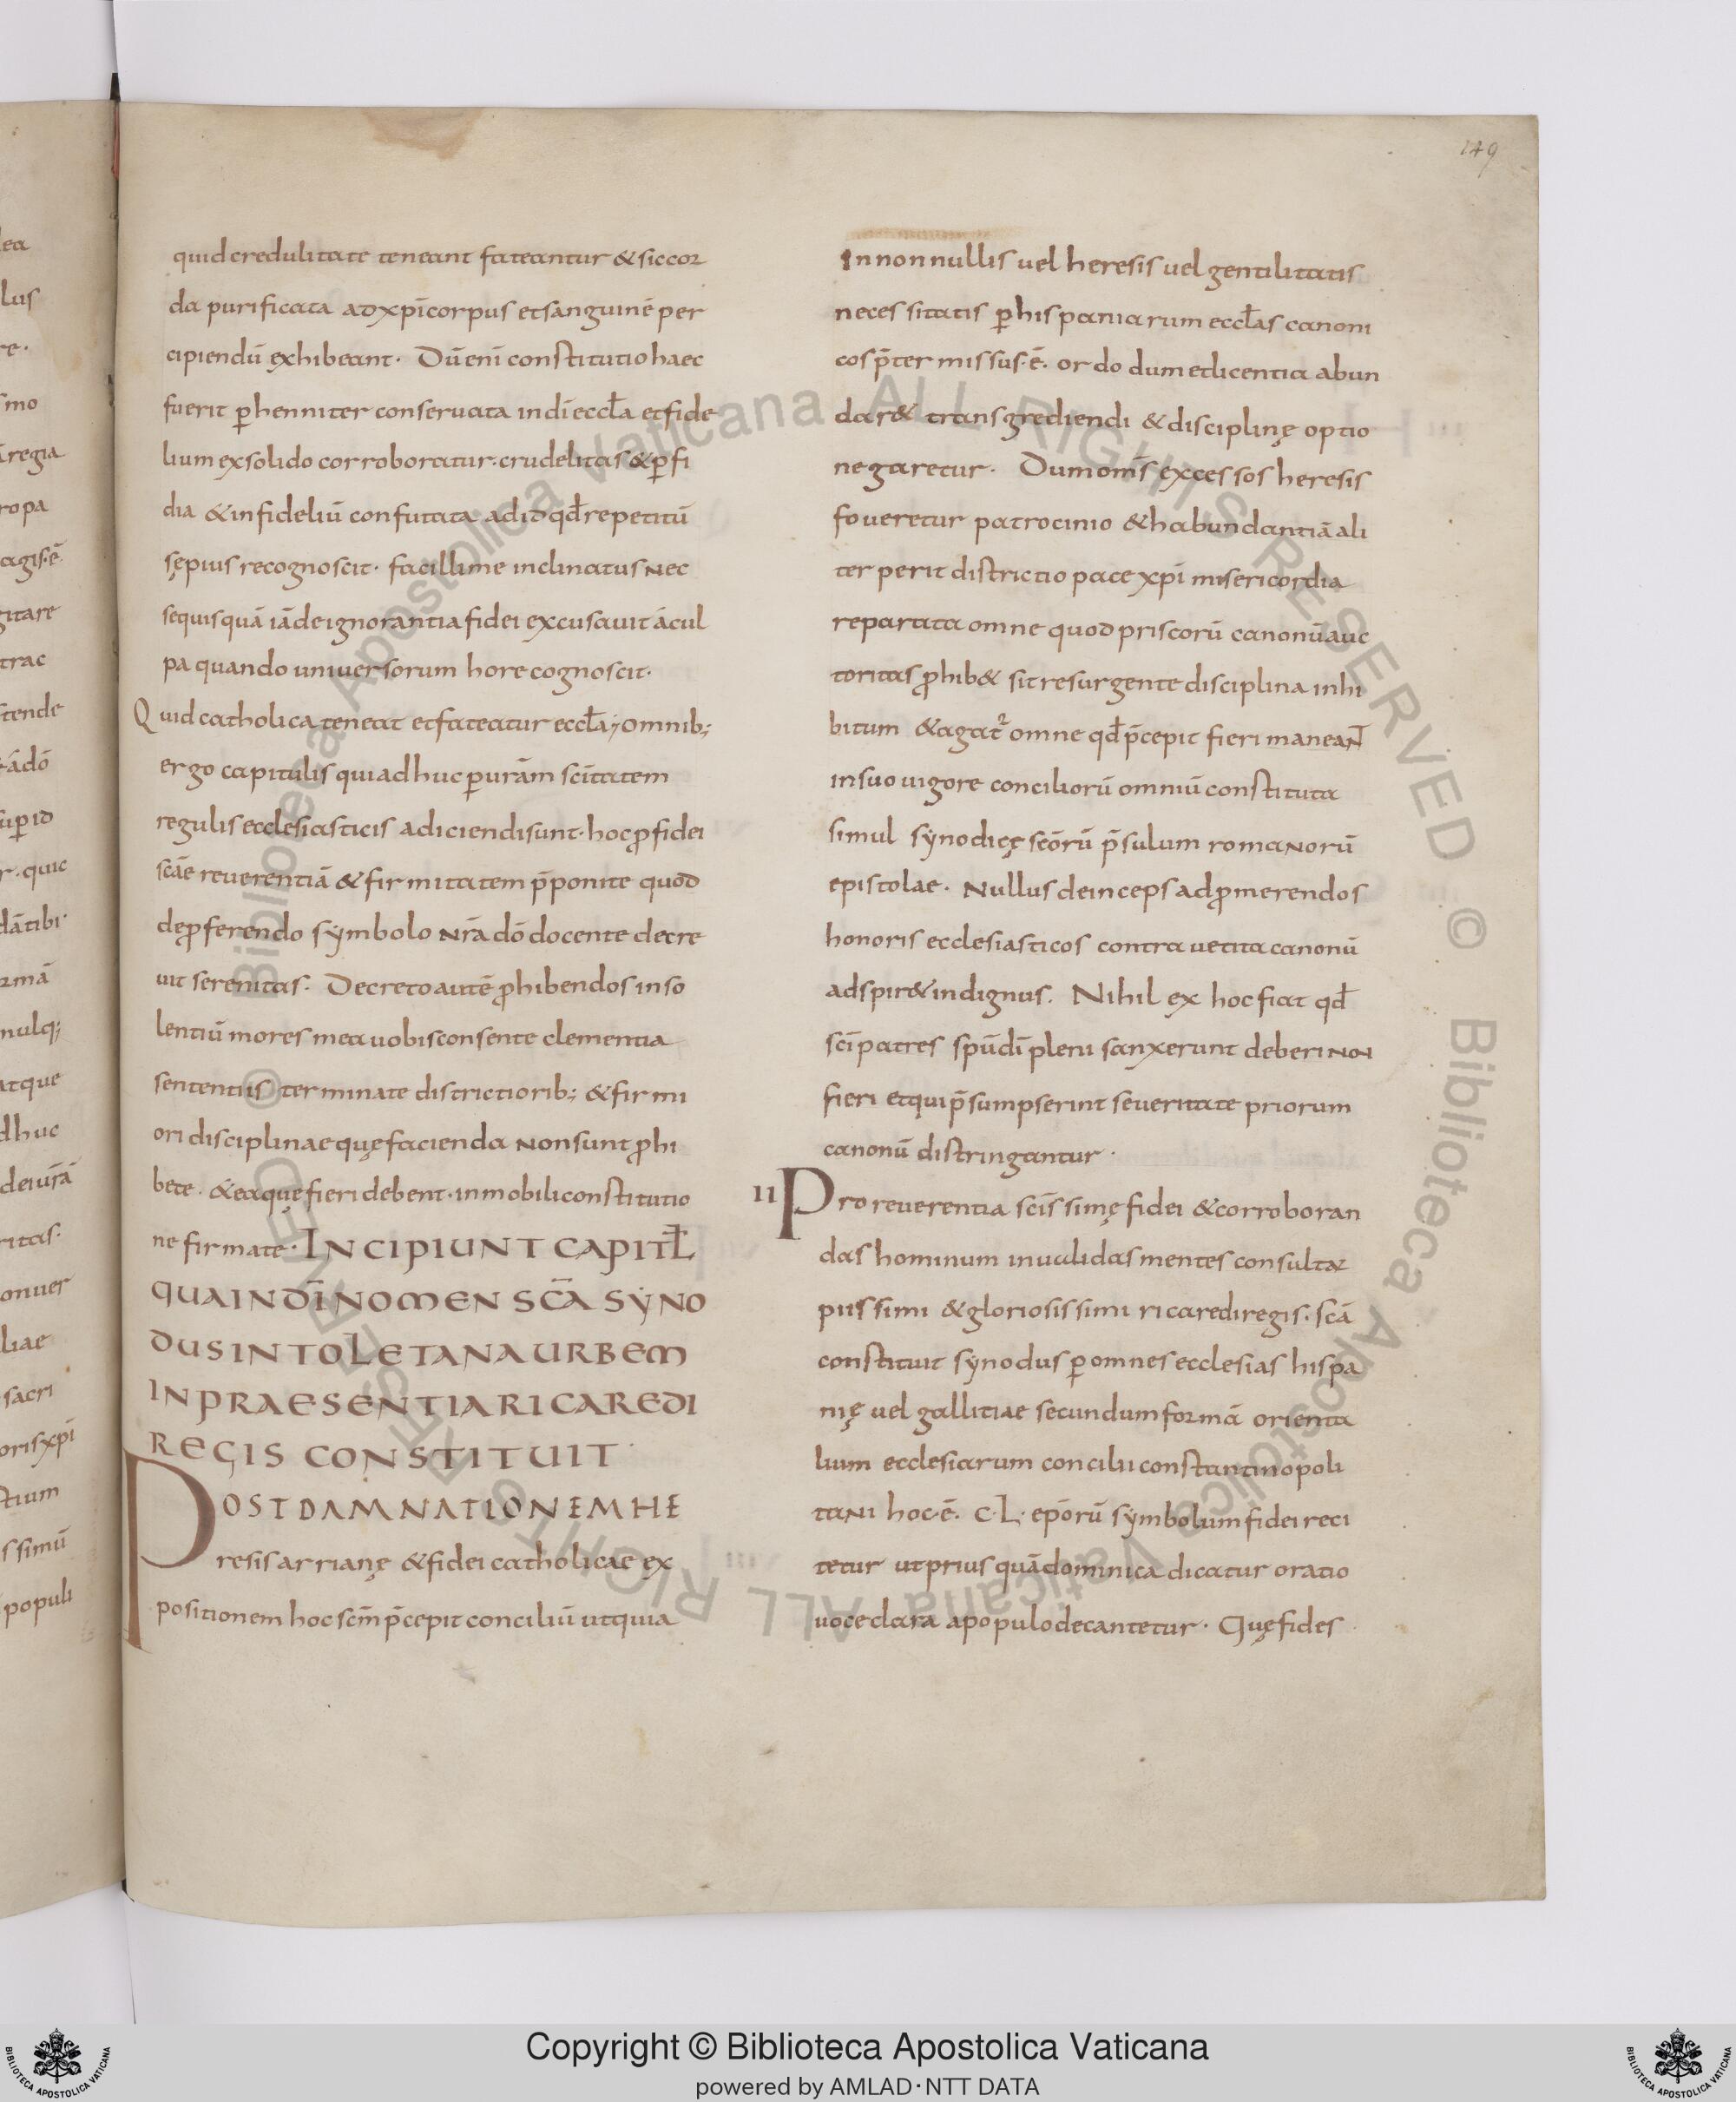 149
quid credulitate teneant fateantur & sic cor
da purificata ad xpi corpus et sanguinē per
cipiendū exhibeant. Dū enī constitutio haec
fuerit ꝑhenniter conseruata in dī eccła et fide
lium ex solido corroboratur. crudelitas & ꝑfi
dia & infideliū confutata ad id qđ repetitū
sępius recognoscit. facillime inclinatus nec
se quisquā iā de ignorantia fidei excusauit a cul
pa quando uniuersorum hore cognoscit.
Quid catholica teneat et fateatur eccła; omnib;
ergo capitulis qui adhuc ꝑ urām scītatem
regulis ecclesiasticis adiciendi sunt. hoc ꝓ fidei
scāe reuerentiā & firmitatem p̄ponite quod
de ꝓferendo sẏmbolo nrā dō docente decre
uit serenitas. Decreto autē ꝓhibendos inso
lentiū mores mea uobis consente clementia
sententiis terminate districtiorib; & firmi
ori disciplinae quę facienda non sunt ꝓhi
bete. & ea quę fieri debent. inmobili constitutio
ne firmate. INCIPIUNT CAPITŁ
QUA IN DĪ NOMEN SCĀ SẎNO
DUS IN TOLETANA URBEM
IN PRAESENTIA RICAREDI
REGIS CONSTITUIT
POST DAMNATIONEM HE
resis arrianę & fidei catholicae ex
positionem hoc scm̄ p̄cepit conciliū ut quia
in nonnullis uel heresis uel gentilitatis
necessitatis ꝑ hispaniarum ecclas canoni
cos p̄termissus.ē. ordo dum et licentia abun
dar& transgrediendi & disciplinę optio
negaretur. Dum om̄s excessos heresis
foueretur patrocinio & habundantiā ali
ter perit districtio pace xpī misericordia
reparata omne quod priscorū canonū auc
toritas ꝓhib& sit resurgente disciplina inhi
bitum & agat᷒ omne qđ p̄cepit fieri maneaNT
in suo uigore conciliorū omniū constituta
simul sẏnodicę scōrū p̄sulum romanorū
epistolae. Nullus deinceps ad ꝓmerendos
honoris ecclesiasticos contra uetita canonū
adspir& indignus. Nihil ex hoc fiat qđ
scī patres spū dī pleni sanxerunt deberi non
fieri et qui p̄sumpserint seueritate priorum
canonū distringantur.
II Pro reuerentia scīssimę fidei & corroboran
das hominum inualidas mentes consultar
piissimi & gloriosissimi ricaredi regis. scā
constituit sẏnodus ꝑ omnes ecclesias hispa
nię uel gallitiae secundum formā orienta
lium ecclesiarum concilii constantinopoli
tani hoc.ē. C.L. epōrū sẏmbolum fidei reci
tetur ut prius quā dominica dicatur oratio
uoce clara a populo decantetur. Quę fides
Copyright © Biblioteca Apostolica Vaticana
powered by AMLAD·NTT DATA
© Biblioteca Apostolica Vaticana ALL RIGHTS RESERVED